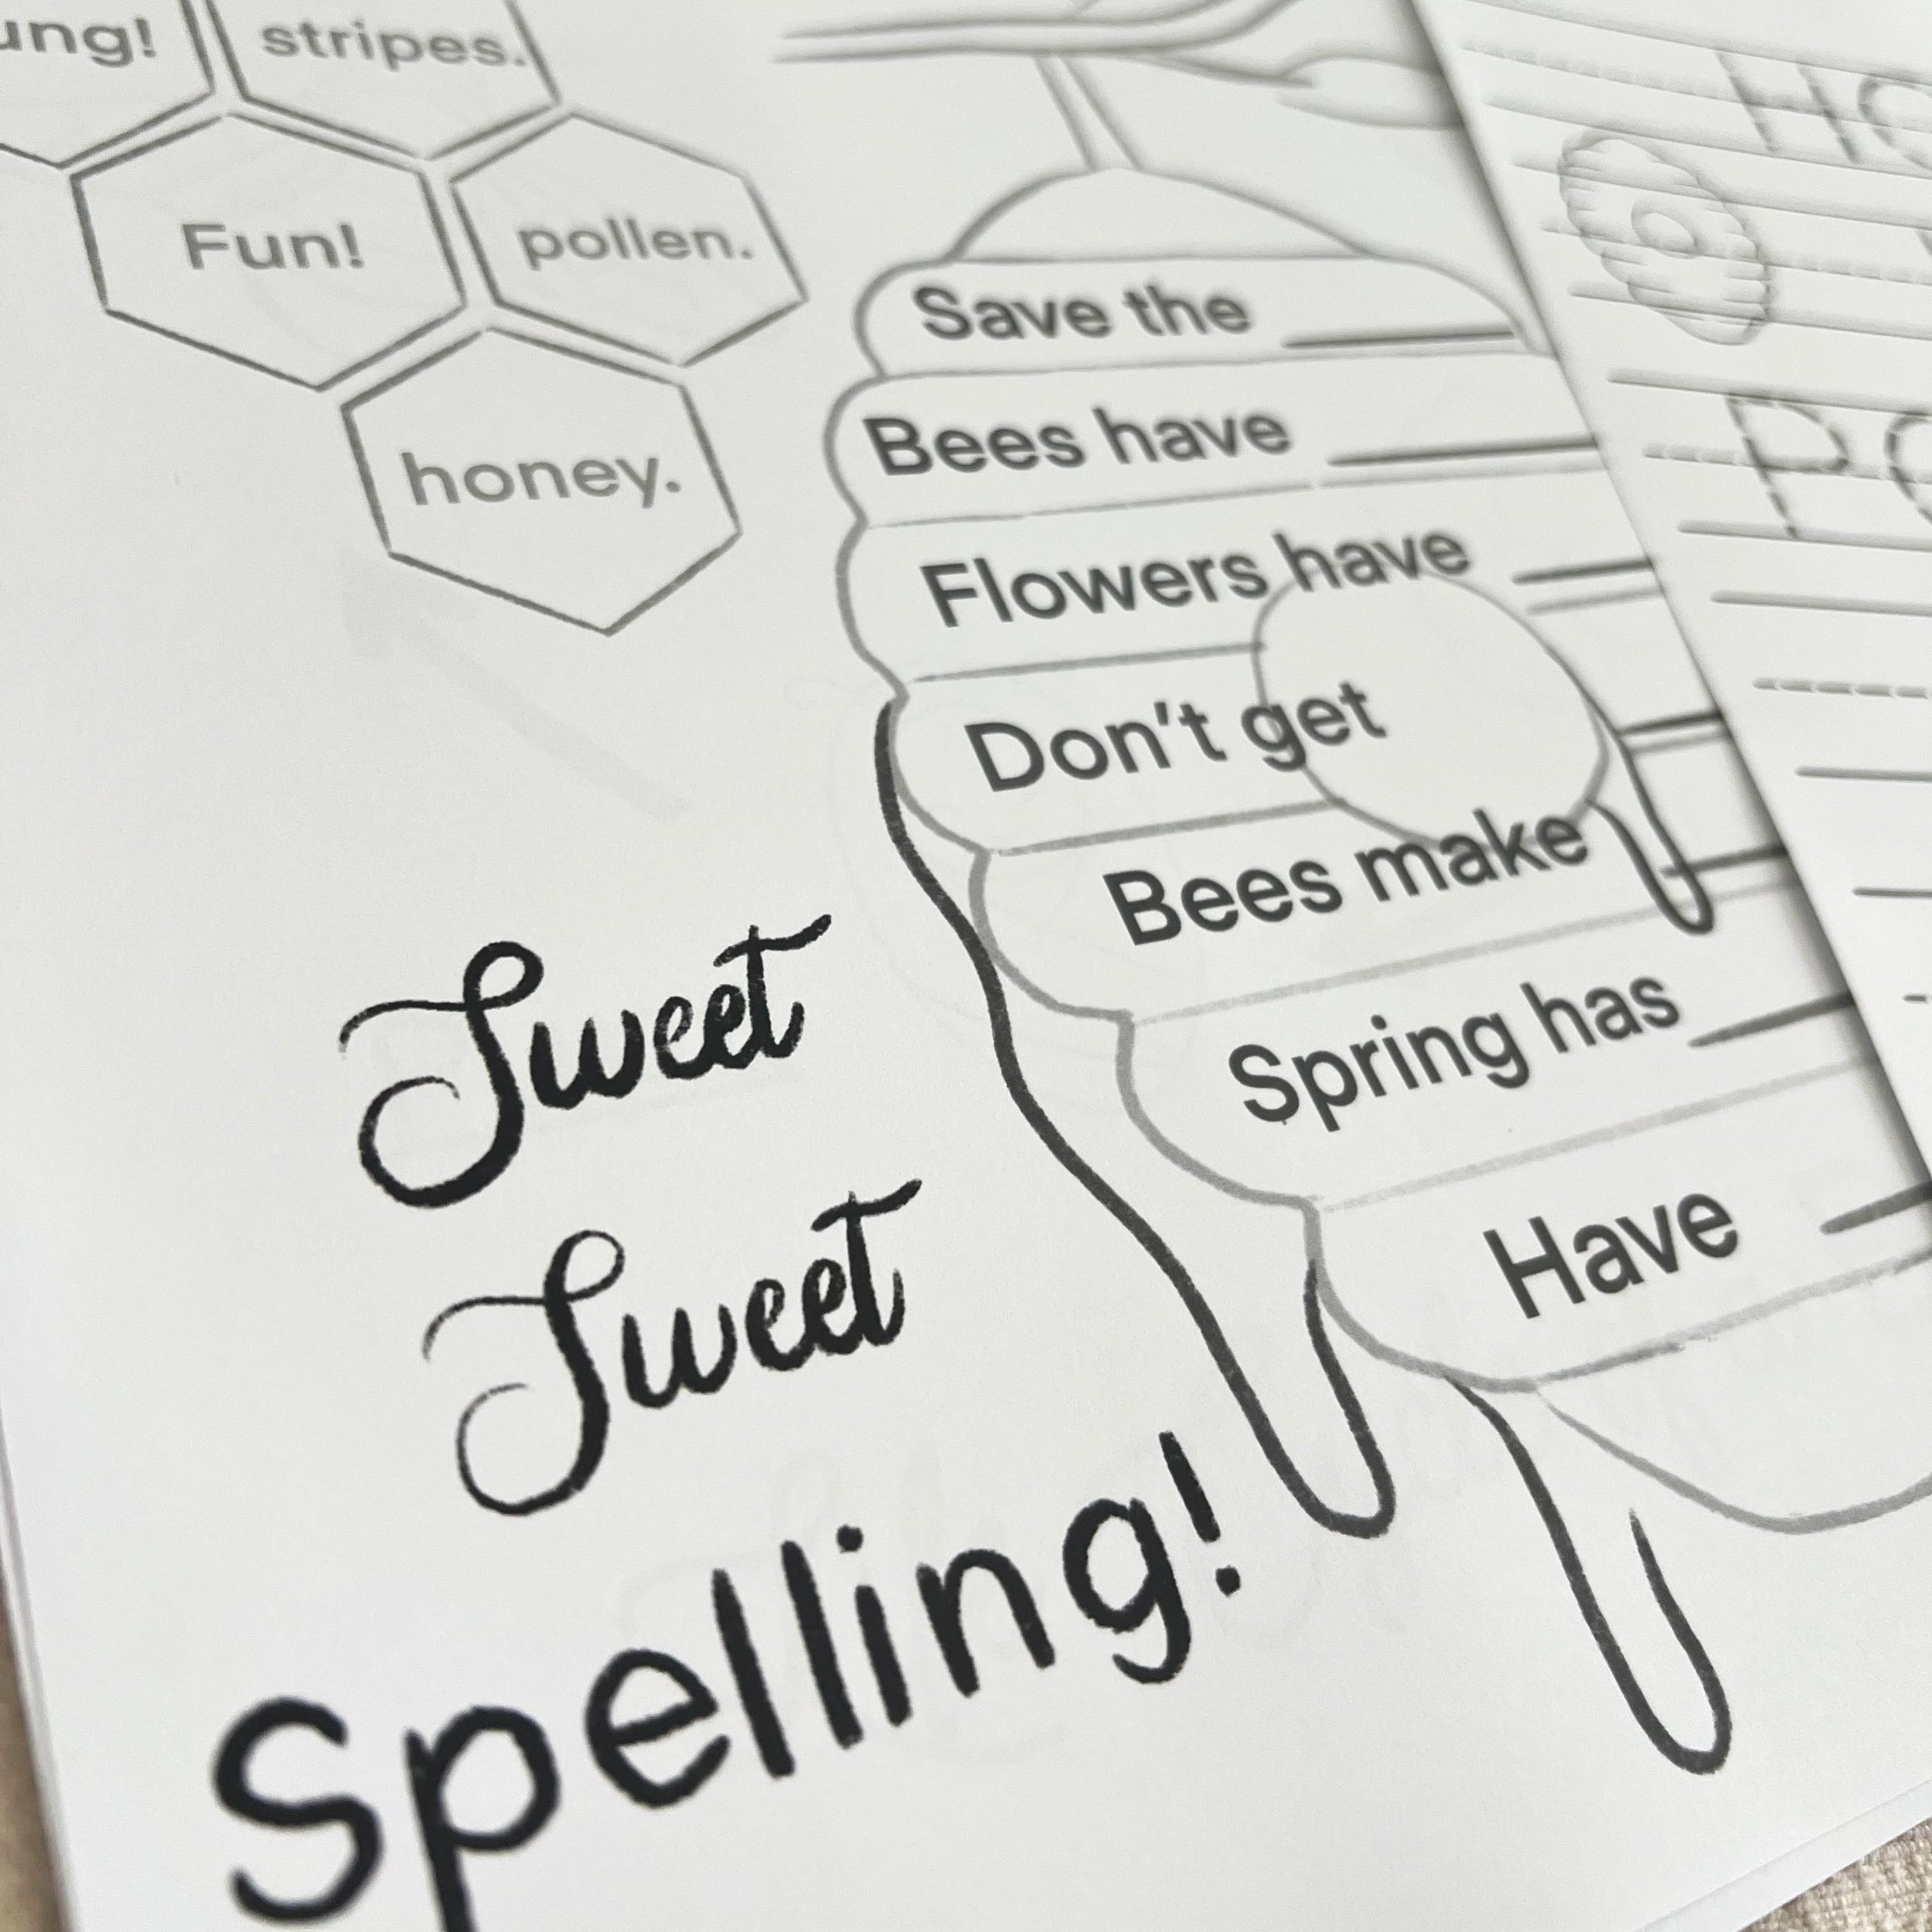 stripes.
Fun!
pollen.
honey.
Save the
Bees have
Flowers have
Don't get
Bees make
Spring has
Have
Sweet
Sweet
Spelling!